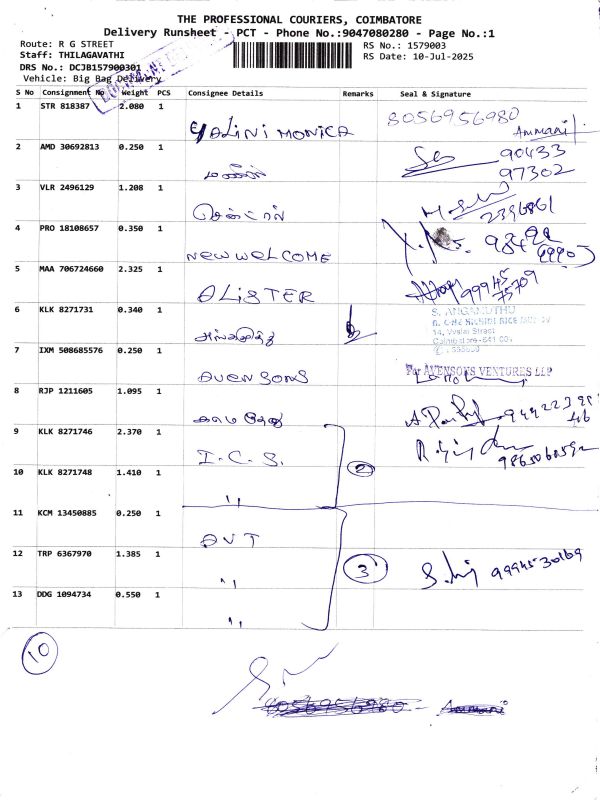 THE PROFESSIONAL COURIERS, COIMBATORE
Delivery Runsheet - PCT - Phone No.:9047080280 - Page No.:1
Route: R G STREET
RS No.: 1579003
Staff: THILAGAVATHI
RS Date: 10-Jul-2025
DRS No.: DCJB157900301
Vehicle: Big Bag Delivery
S No Consignment No Weight PCS Consignee Details Remarks Seal & Signature
1 STR 818387 2.080 1
YALINI MONICA 8056956980
Ammani
2 AMD 30692813 0.250 1
90433
97302
3 VLR 2496129 1.208 1
4 PRO 18108657 0.350 1
NEW WELCOME
5 MAA 706724660 2.325 1
ALISTER 99945
75709
6 KLK 8271731 0.340 1
S. ANGAMUTHU
7 IXM 508685576 0.250 1
AVENSONS For AVENSONS VENTURES LLP
8 RJP 1211605 1.095 1
9 KLK 8271746 2.370 1
I.C.S. 2
10 KLK 8271748 1.410 1
"
11 KCM 13450885 0.250 1
AVT
12 TRP 6367970 1.385 1
" 3 9994530169
13 DDG 1094734 0.550 1
"
10
8056956980 - Ammani